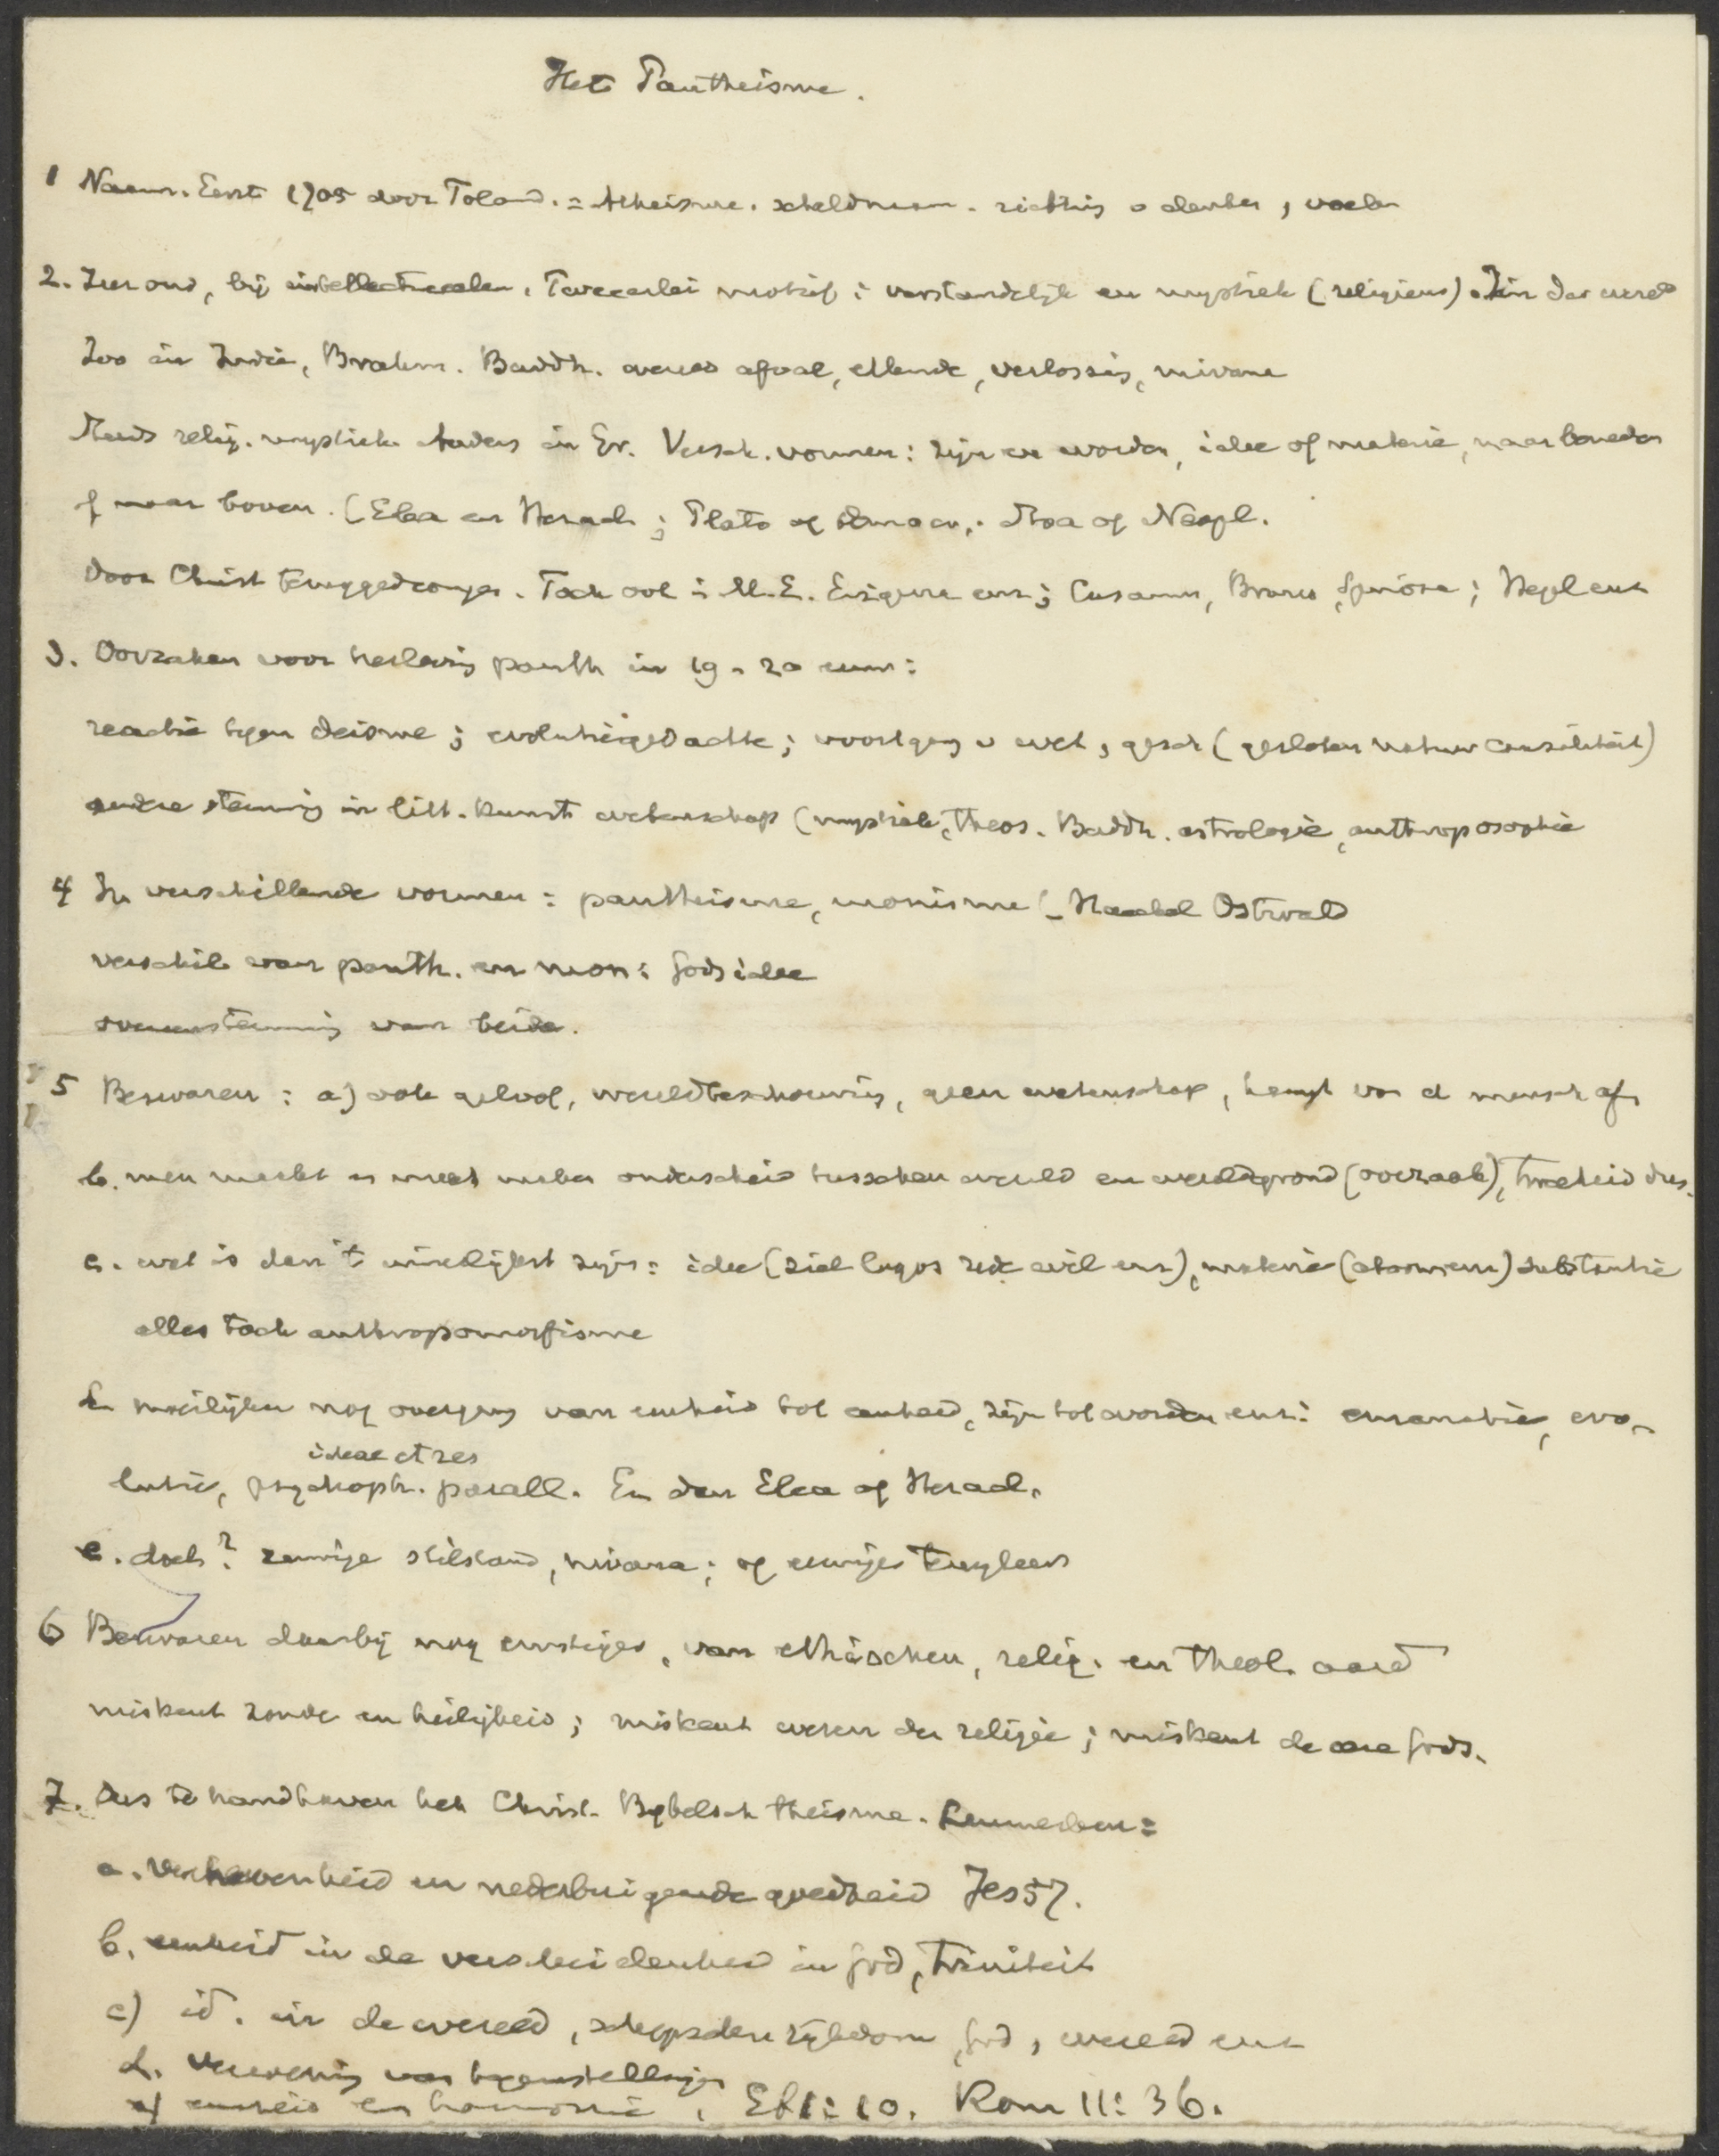 Het Pantheisme.
1 Naam. Eerst 1705 door Toland. = Atheisme. scheldnaam. richting v denken, voelen
2. Zeer oud, bij intellectueelen. Tweeerlei motief: verstandelijk en mystiek (religieus). Zin der wereld
Zoo in Indië, Brahm. Buddh. wereld afval, ellende, verlossing, nirvana
steeds relig. mystiek. Anders in Gr. Versch. vormen: zijn en worden, idee of materie, naar beneden
of naar boven. (Elea en Heracl; Plato of Democr.. Stoa of Neopl.
Door Christ teruggedrongen. Toch ook in M.E. Erigena enz; Cusanus, Bruno, Spinoza; Hegel enz
3. Oorzaken voor herleving panth in 19 - 20 eeuw:
reactie tegen deisme; evolutiegedachte; voortgang v wet, gesch (gesloten natuur causaliteit)
andere stemming in litt. kunst wetenschap (mystiek, theos. Buddh. astrologie, anthroposophie
4 In verschillende vormen: pantheisme, monisme (- Haeckel Ostwald
verschil van panth. en mon: godsidee
overeenstemming van beide.
5 Bezwaren: a) ook geloof, wereldbeschouwing, geen wetenschap, hangt van d mensch af,
b. men maakt er weer onderscheid tusschen wereld en wereldgrond (oorzaak), tweeheid dus.
c. wat is dan 't wirkelijkst zijn: idee (ziel logos rede wil enz), materie (atoomen) substantie
alles toch anthropomorfisme
d. moeilijker nog overgang van eenheid tot zijn tot worden enz: emanatie, evo-
ideae et res
lutie, psychoph. parall. En dan Elea of Heracl.
e. doel? eeuwige stilstand, nirvana; of eeuwige
6 Bezwaren daarbij nog ernstiger, van ethischen, relig. en theol. aard
miskent zonde en heiligheid; miskent wezen der religie; miskent de eere Gods.
7. Dus te handhaven het Christ. Bijbelsch theisme. Kenmerken:
a. Verhevenheid en nederbuigende goedheid Jes 57.
b. eenheid in de verscheidenheid in God, triniteit
c) id. in de wereld, schepselen rijkdom, God, wereld enz
d. Verzoening van tegenstellingen
e) eenheid en harmonie, Ef 1:10. Rom 11:36.